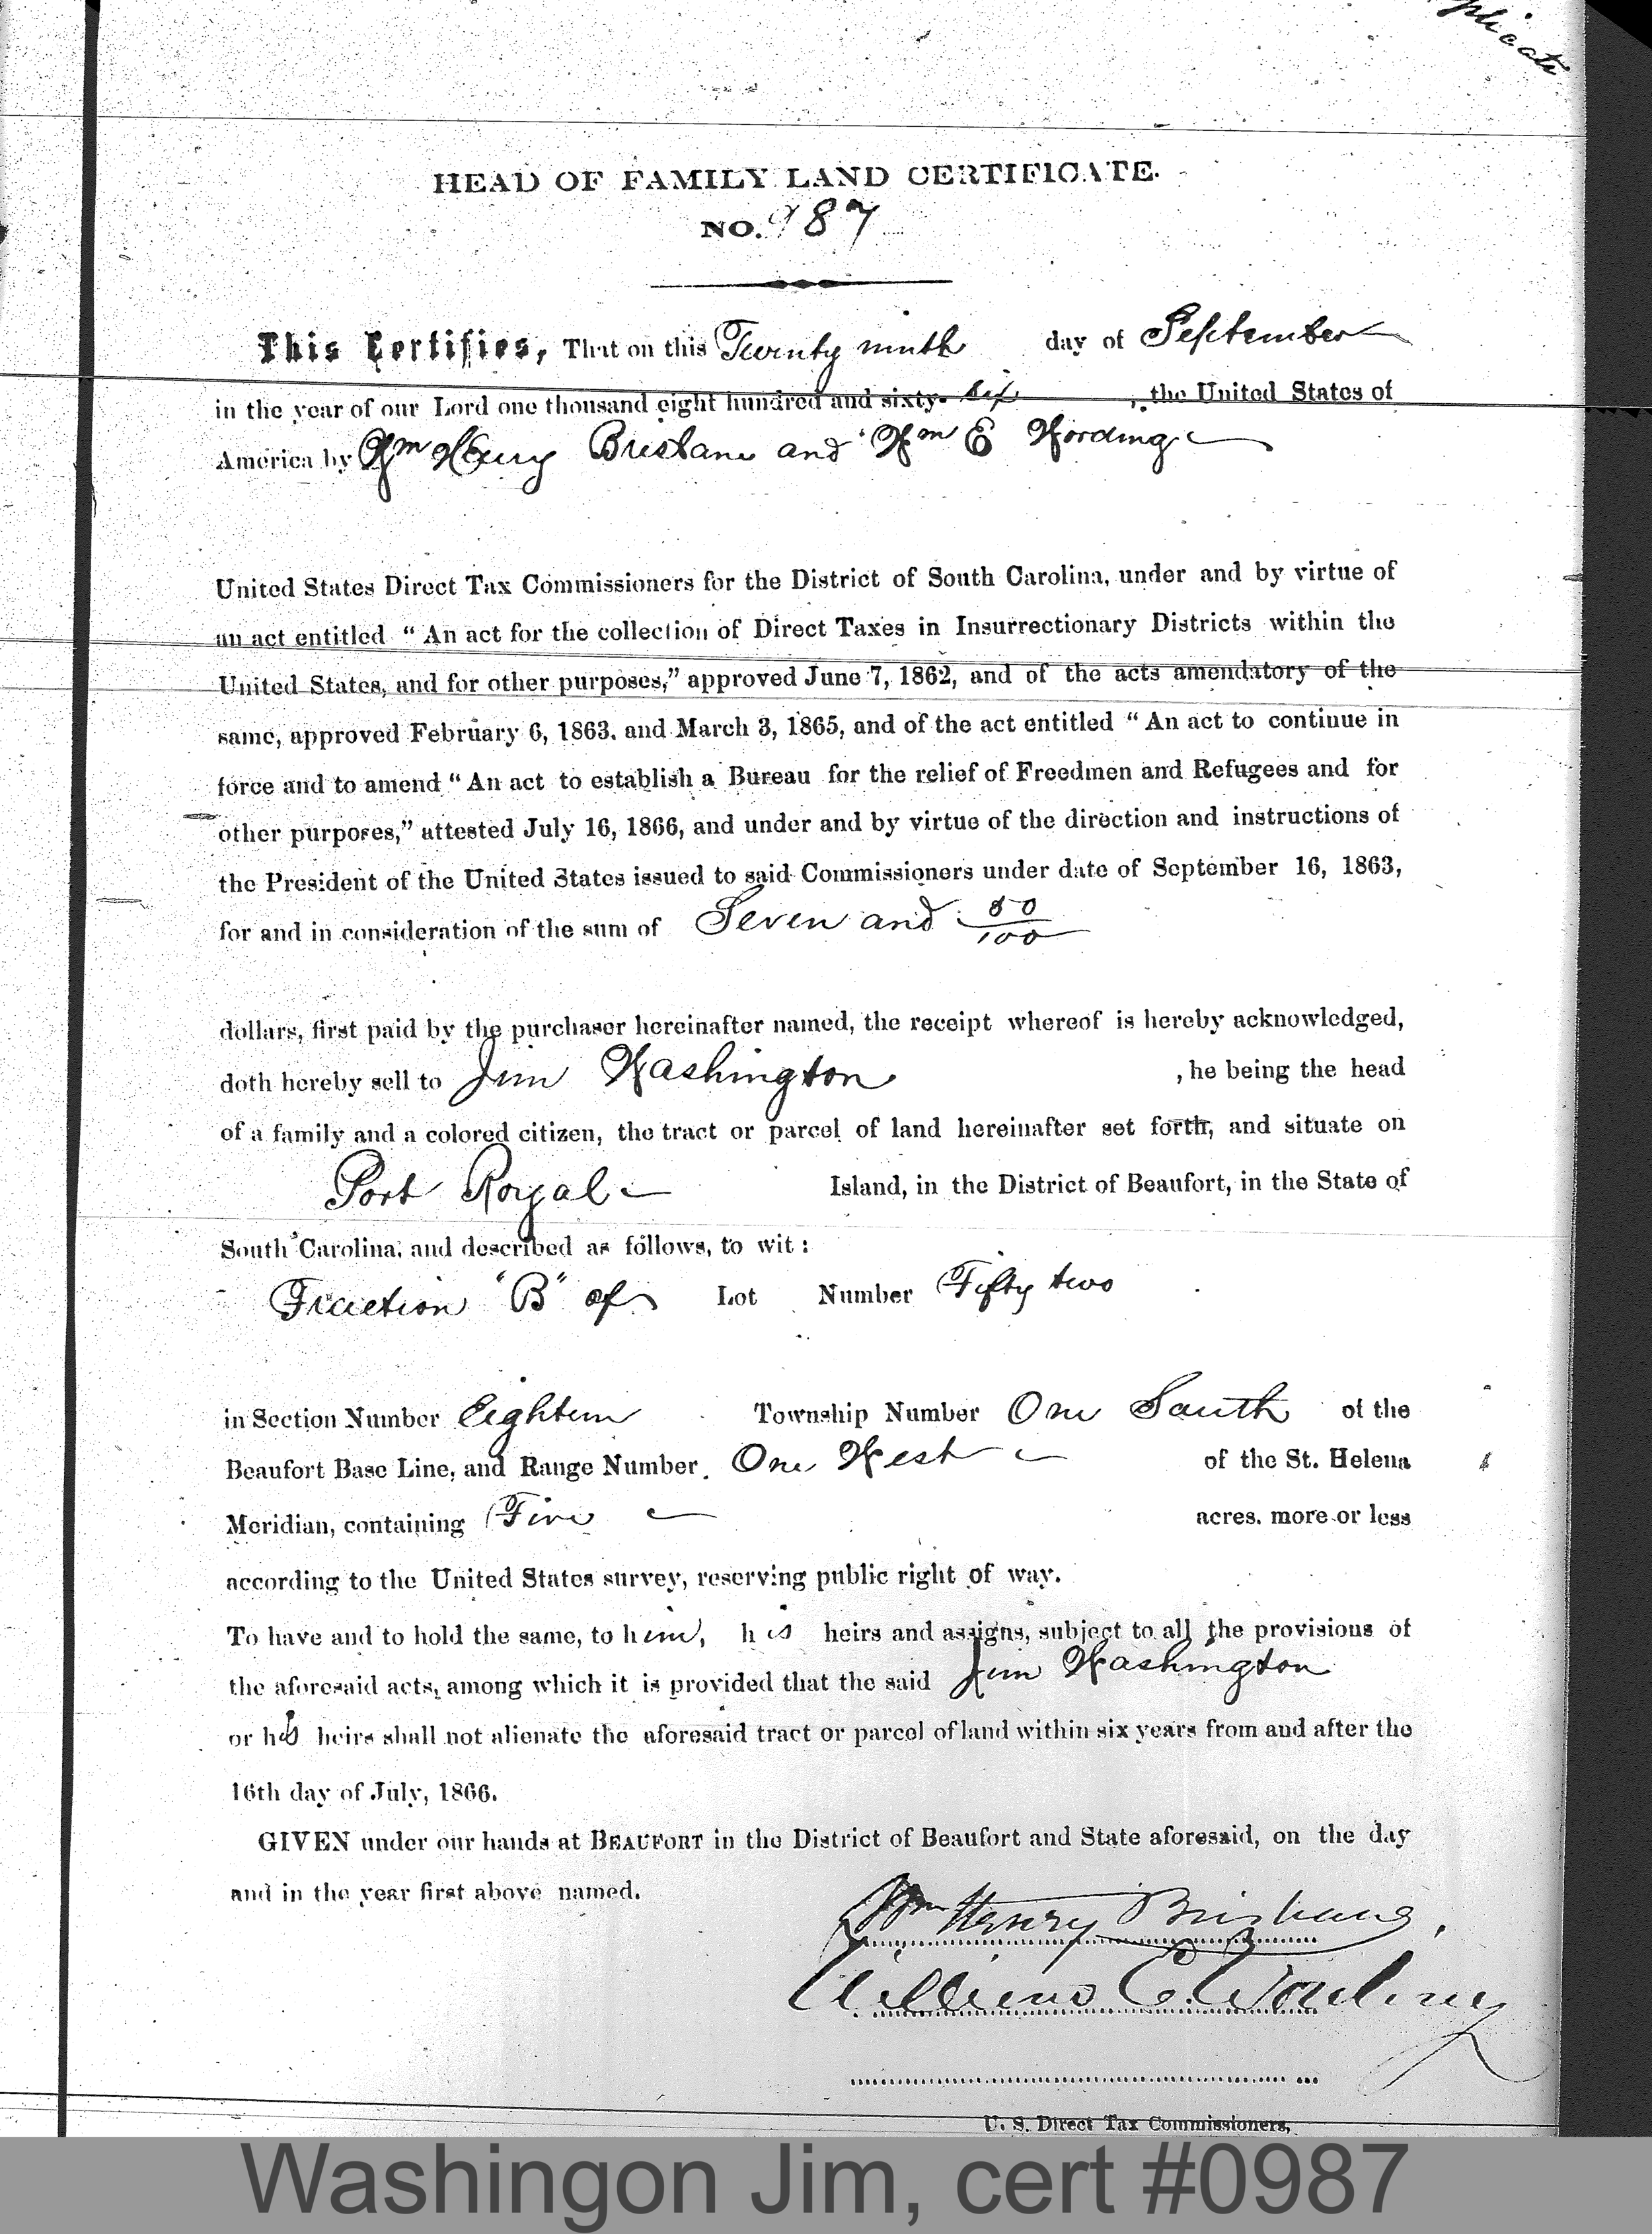 plicate
HEAD OF FAMILY LAND CERTIFICATE.
NO. 987
This Certifies, That on this Twenty ninth day of September
in the year of our Lord one thousand eight hundred and sixty-six, the United States of
America by Wm Henry Brisbane and Wm E Wording
United States Direct Tax Commissioners for the District of South Carolina, under and by virtue of
an act entitled "An act for the collection of Direct Taxes in Insurrectionary Districts within the
United States, and for other purposes," approved June 7, 1862, and of the acts amendatory of the
same, approved February 6, 1863, and March 3, 1865, and of the act entitled "An act to continue in
force and to amend "An act to establish a Bureau for the relief of Freedmen and Refugees and for
other purposes," attested July 16, 1866, and under and by virtue of the direction and instructions of
the President of the United States issued to said Commissioners under date of September 16, 1863,
for and in consideration of the sum of Seven and 50/100
dollars, first paid by the purchaser hereinafter named, the receipt whereof is hereby acknowledged,
doth hereby sell to Jim Washington , he being the head
of a family and a colored citizen, the tract or parcel of land hereinafter set forth, and situate on
Port Royal Island, in the District of Beaufort, in the State of
South Carolina, and described as follows, to wit:
Fraction "B" of Lot Number Fifty two
in Section Number Eighteen Township Number One South of the
Beaufort Base Line, and Range Number One West of the St. Helena
Meridian, containing Five acres, more or less
according to the United States survey, reserving public right of way.
To have and to hold the same, to him, his heirs and assigns, subject to all the provisions of
the aforesaid acts, among which it is provided that the said Jim Washington
or his heirs shall not alienate the aforesaid tract or parcel of land within six years from and after the
16th day of July, 1866.
GIVEN under our hands at BEAUFORT in the District of Beaufort and State aforesaid, on the day
and in the year first above named.
Wm Henry Brisbane,
William E. Wording
U. S. Direct Tax Commissioners,
Washingon Jim, cert #0987